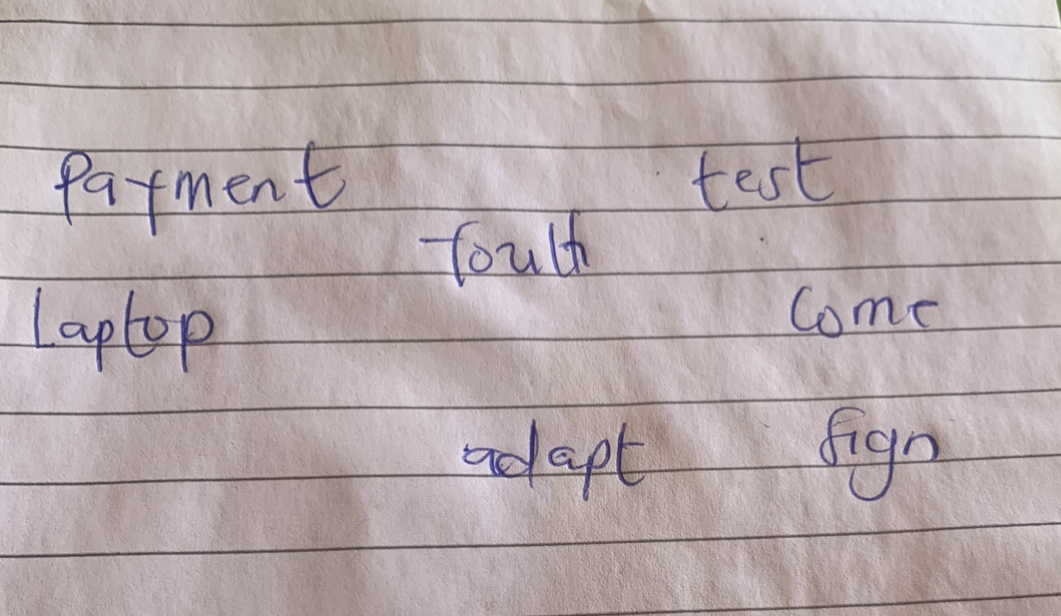 Payment test
Laptop Come
adapt sign